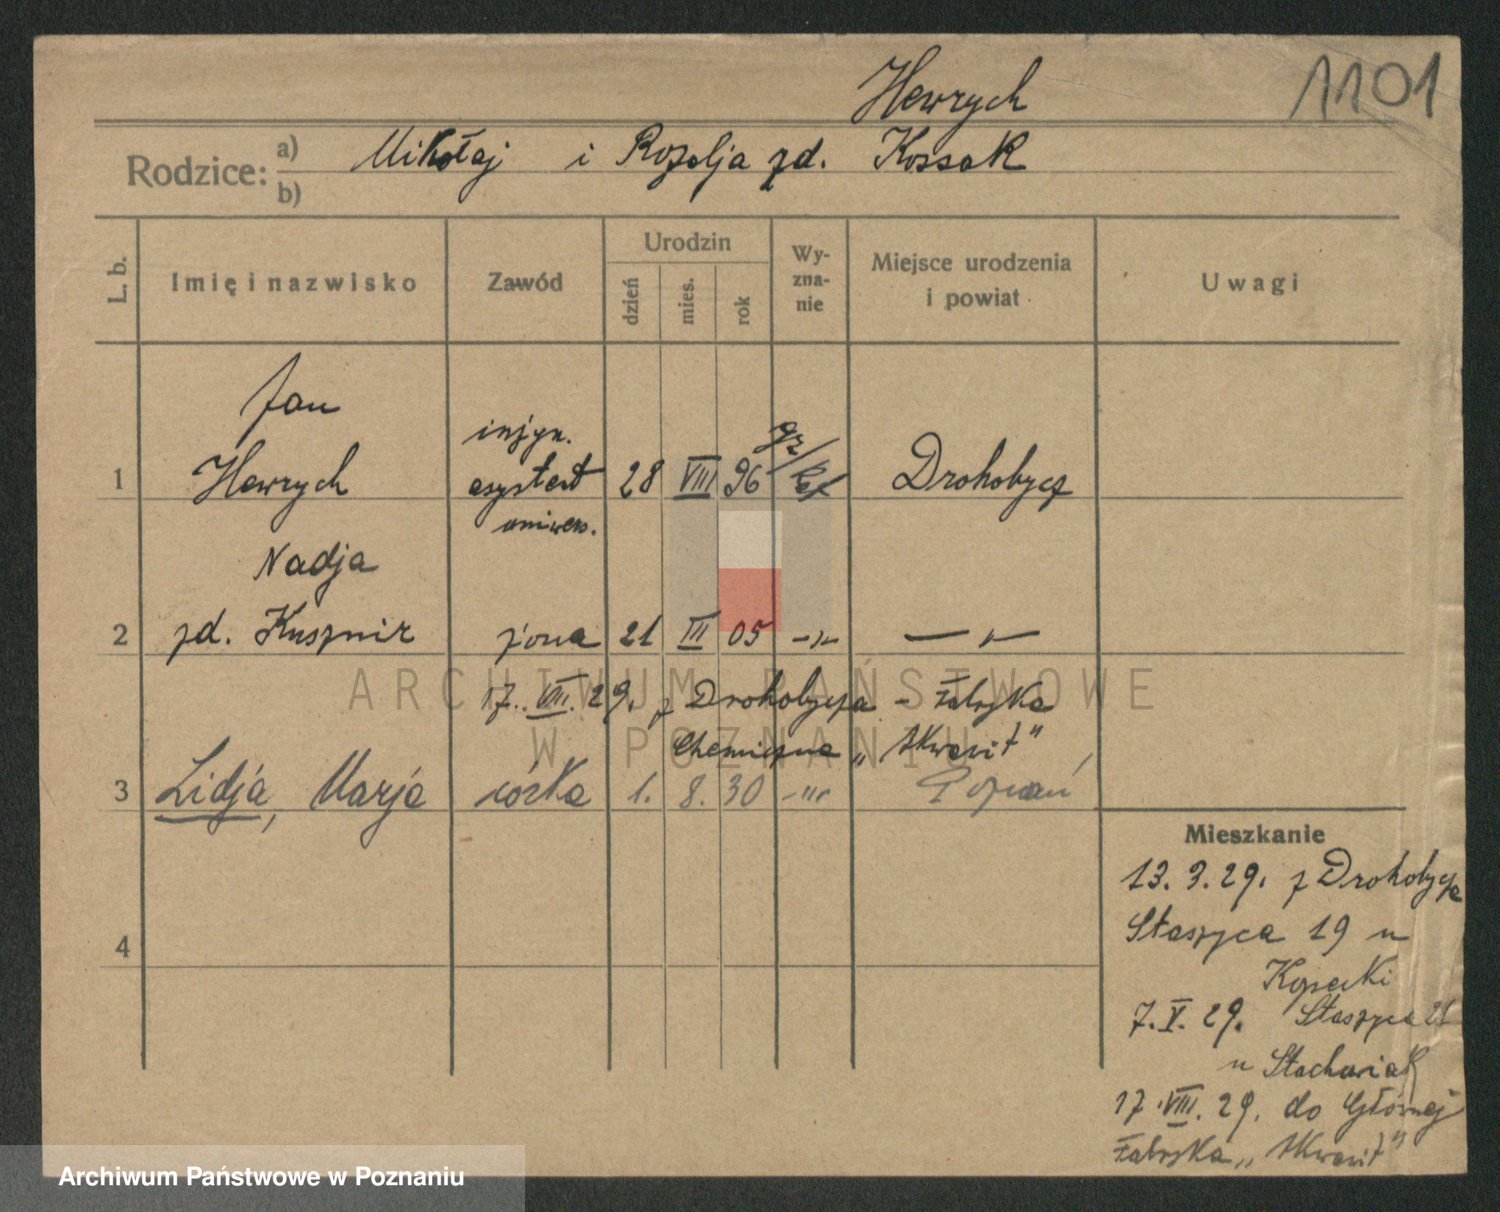 Hewrych
1101
Rodzice: a) b) Mikołaj i Rozalja zd. Kossak
L. b. Imię i nazwisko Zawód Urodzin dzień mies. rok Wyznanie Miejsce urodzenia i powiat Uwagi
Jan
inżyn. gr/
1 Hewrych asystent 28 VIII 96 kat Drohobycz
uniwers.
Nadja
2 zd. Kusznir żona 21 III 05 -"- — " —
17. VIII. 29. z Drohobycza - Fabryka
Chemiczna „Akwawit"
3 Lidja, Marja córka 1. 8. 30 -"- Poznań
Mieszkanie
13. 3. 29. z Drohobycza
Staszyca 19 u
4
7. V. 29. Staszyca 21
u Stachowiak
17 VIII. 29. do Głównej
Fabryka „Akwawit"
ARCHIWUM PAŃSTWOWE
W POZNANIU
Archiwum Państwowe w Poznaniu